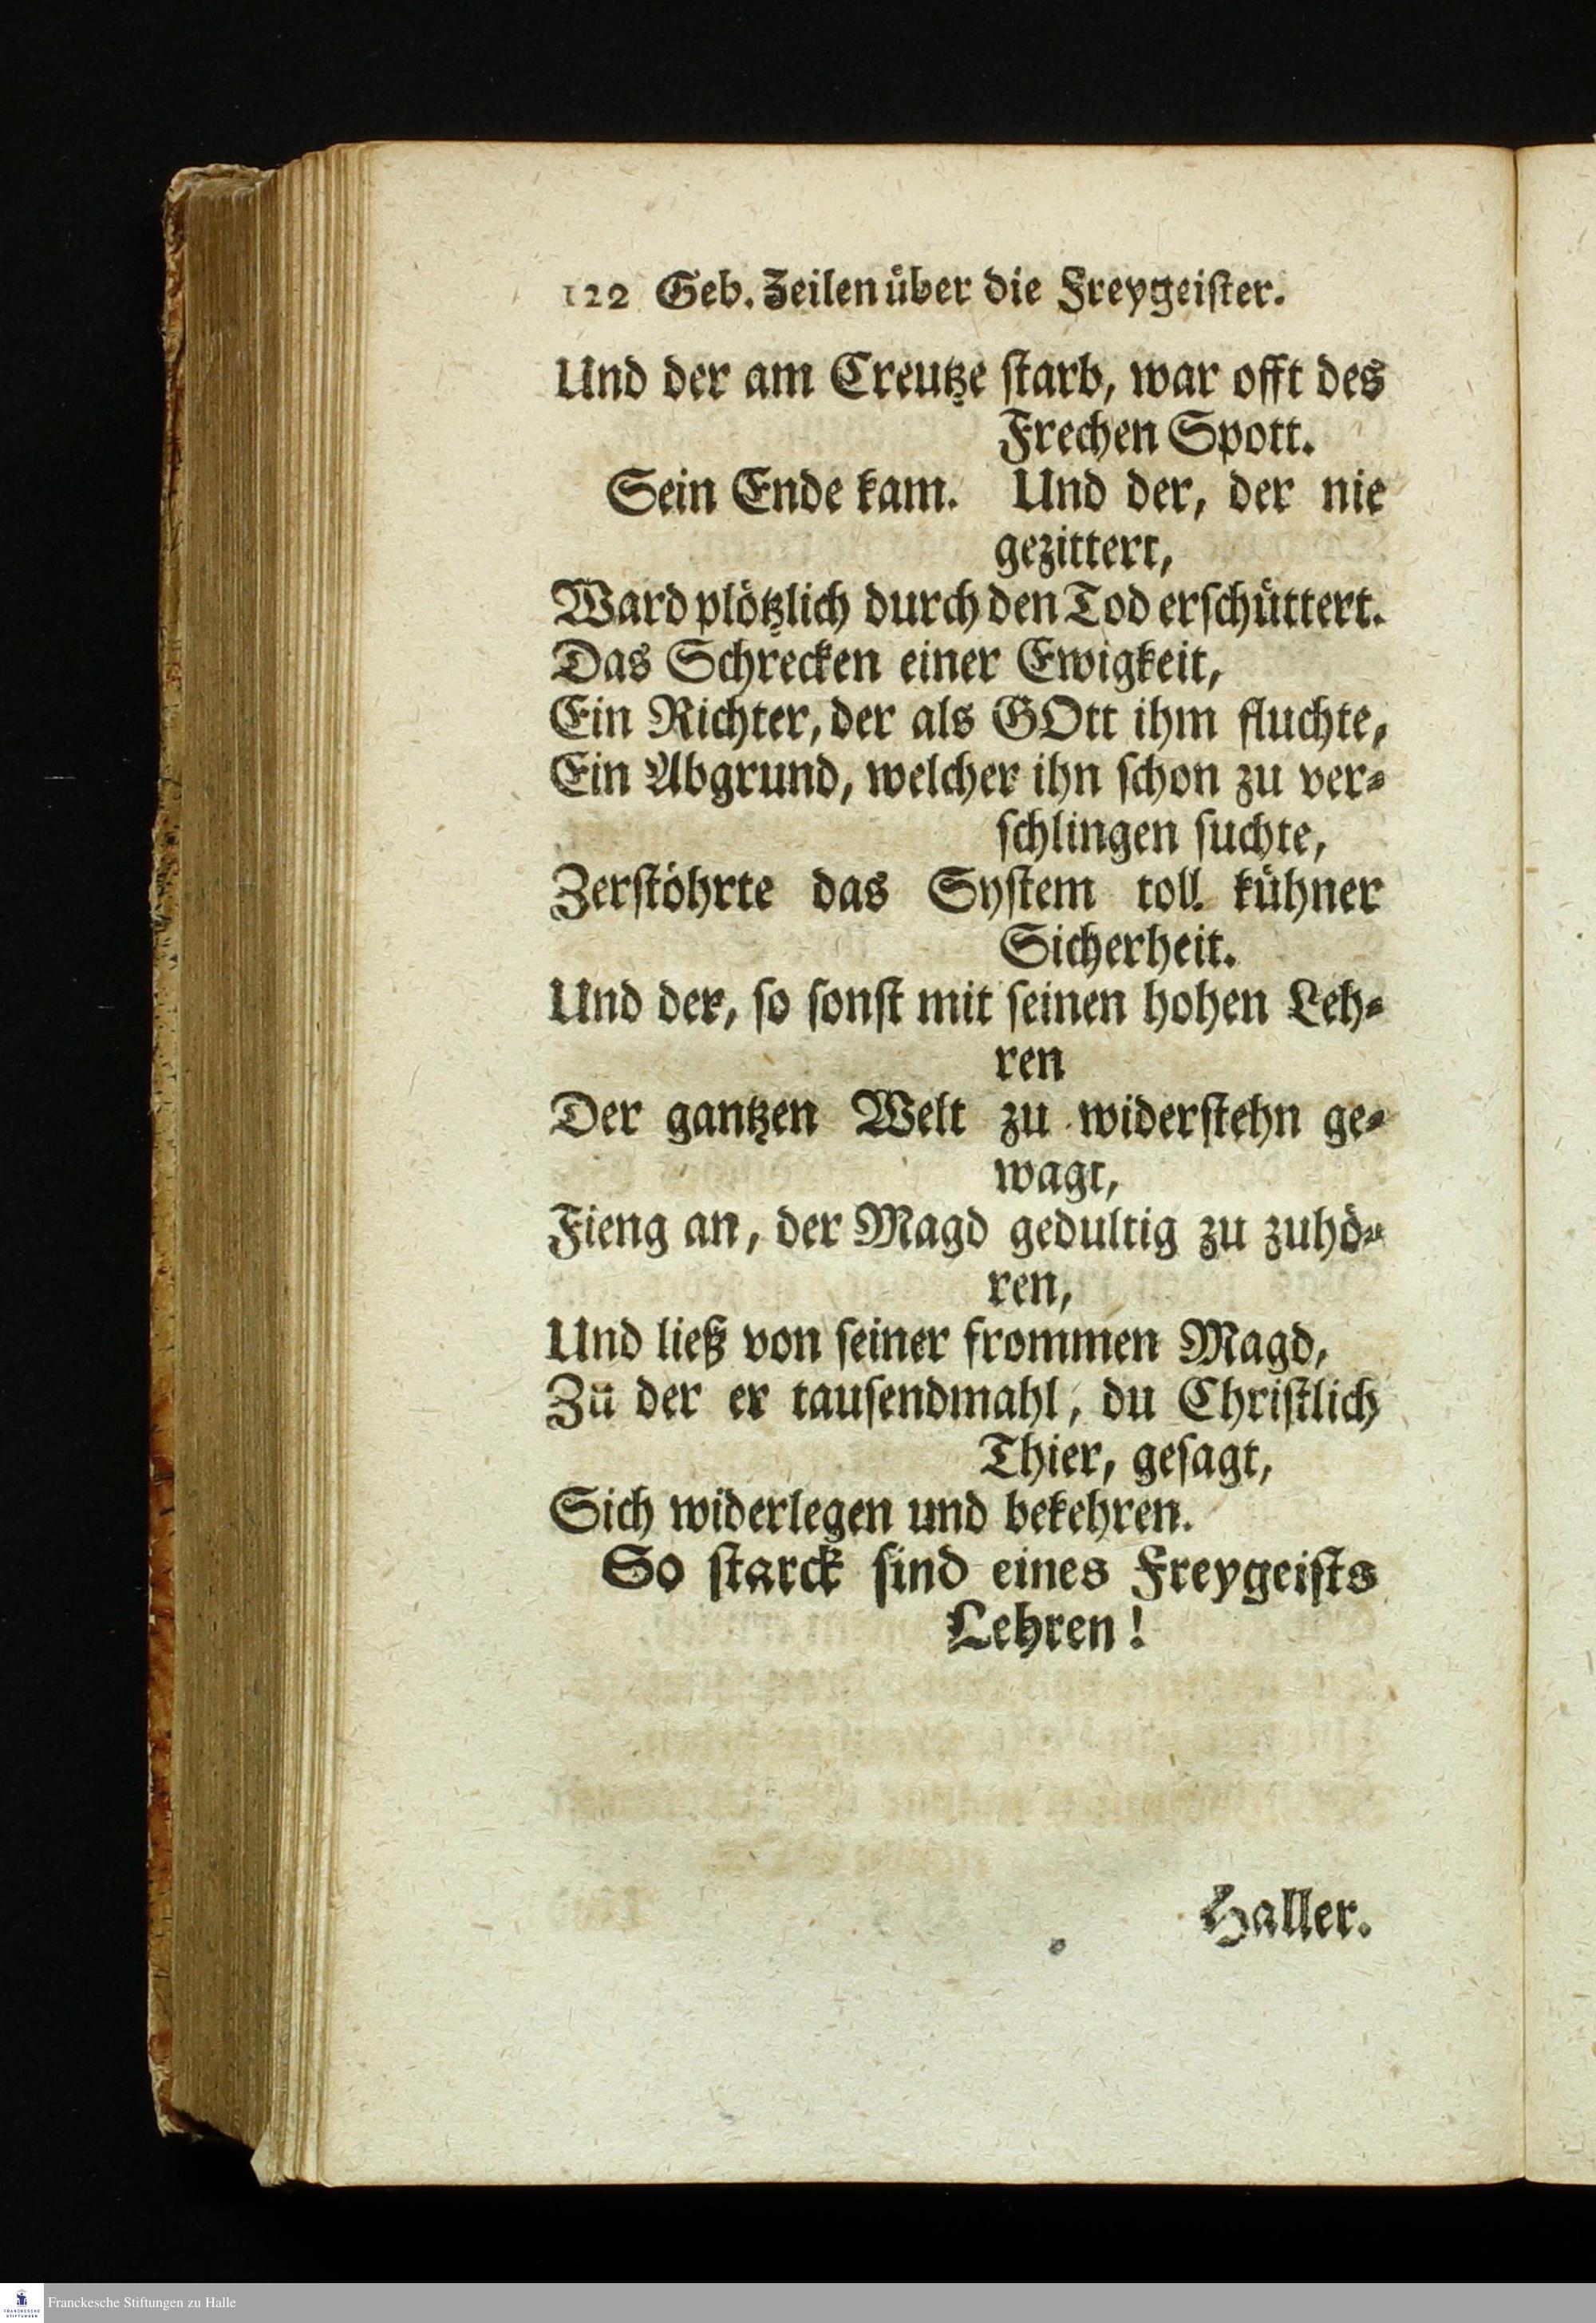 122 Geb. Zeilen über die Freygeiſter.
Und der am Creutze ſtarb, war offt des
Frechen Spott.
Sein Ende kam. Und der, der nie
gezittert,
Ward plötzlich durch den Tod erſchüttert.
Das Schrecken einer Ewigkeit,
Ein Richter, der als GOtt ihm fluchte,
Ein Abgrund, welcher ihn ſchon zu ver⸗
ſchlingen ſuchte,
Zerſtöhrte das Syſtem toll kühner
Sicherheit.
Und der, ſo ſonſt mit ſeinen hohen Leh⸗
ren
Der gantzen Welt zu widerſtehn ge⸗
wagt,
Fieng an, der Magd gedultig zu zuhö⸗
ren,
Und ließ von ſeiner frommen Magd,
Zu der er tauſendmahl, du Chriſtlich
Thier, geſagt,
Sich widerlegen und bekehren.
So ſtarck ſind eines Freygeiſts
Lehren!
Haller.
FRANCKESCHE STIFTUNGEN
Franckesche Stiftungen zu Halle